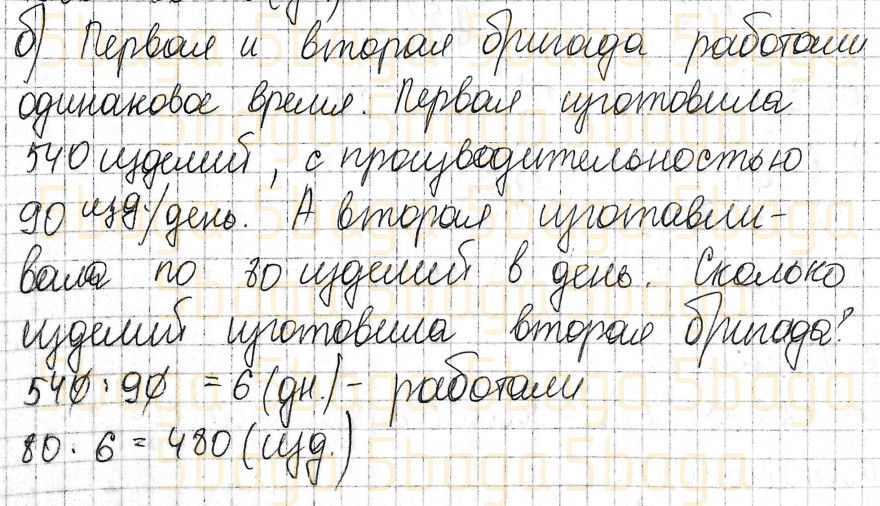 б) Первая и вторая бригада работали
одинаковое время. Первая изготовила
540 изделий, с производительностью
90 изд./день. А вторая изготавли-
вала по 80 изделий в день. Сколько
изделий изготовила вторая бригада?
540 : 90 = 6 (дн.) - работали
80 · 6 = 480 (изд.)